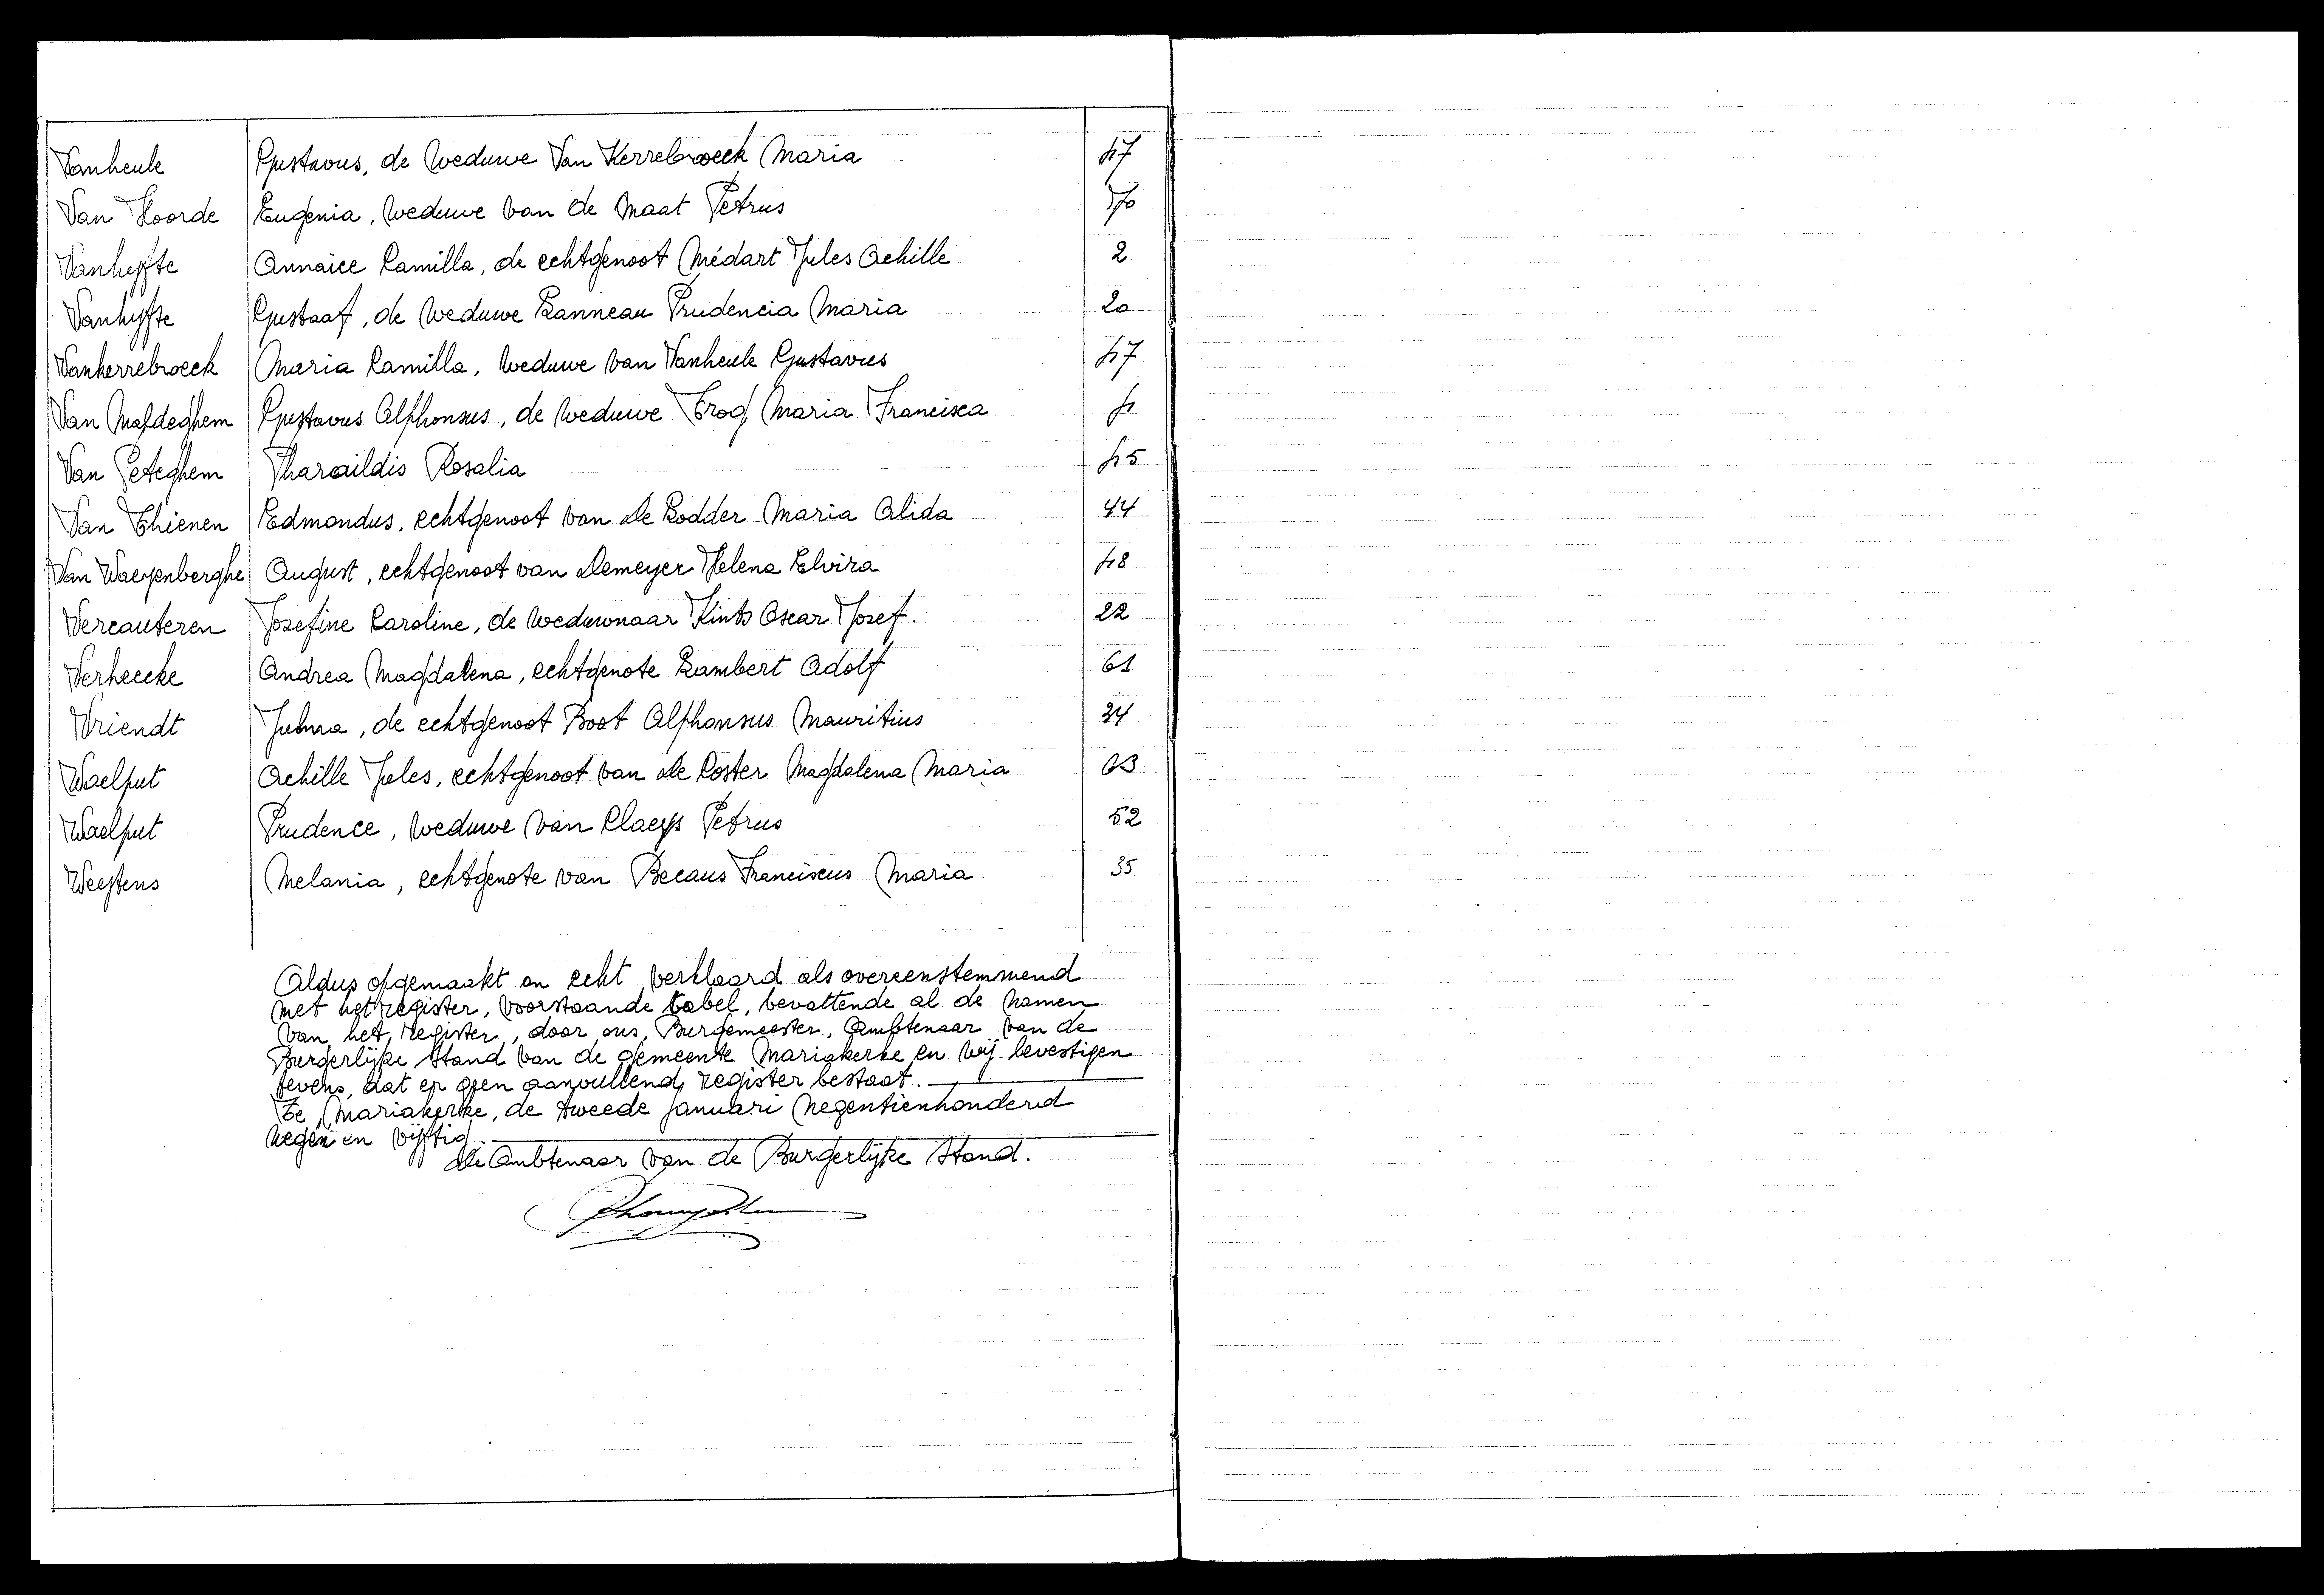 Vanheule Gustavus, de weduwe Van Kerrebroeck Maria 17
Van Hoorde Eugenia, weduwe van de Maat Petrus 70
Vanhyfte Annaïce Camilla, de echtgenoot Médart Jules Achille 2
Vanhyfte Gustaaf, de weduwe Lanneau Prudencia Maria 20
Vankerrebroeck Maria Camilla, weduwe van Vanheule Gustavus 17
Van Maldeghem Gustavus Alphonsus, de weduwe Trog Maria Francisca 1
Van Peteghem Pharaildis Rosalia 15
Van Thienen Edmondus, echtgenoot van De Lodder Maria Alida 44
Van Waeyenberghe August, echtgenoot van Demeyer Helena Elvira 18
Vercauteren Josefine Caroline, de weduwnaar Kints Oscar Jozef. 22
Verheecke Andrea Magdalena, echtgenote Lambert Adolf 61
Vriendt Julma, de echtgenoot Boot Alphonsus Mauritius 34
Waelput Achille Jules, echtgenoot van De Coster Magdalena Maria 63
Waelput Prudence, weduwe van Claeys Petrus 52
Melania, echtgenote van Becaus Franciscus Maria 35
Aldus opgemaakt en echt verklaard als overeenstemmend
met het register, voorstaande tabel, bevattende al de namen
van het register, door ons, Burgemeester, Ambtenaar van de
Burgerlijke Stand van de gemeente Mariakerke en wij bevestigen
tevens, dat er geen aanvullend register bestaat.
Te Mariakerke, de tweede Januari negentienhonderd
negen en vijftig
De Ambtenaar van de Burgerlijke Stand.